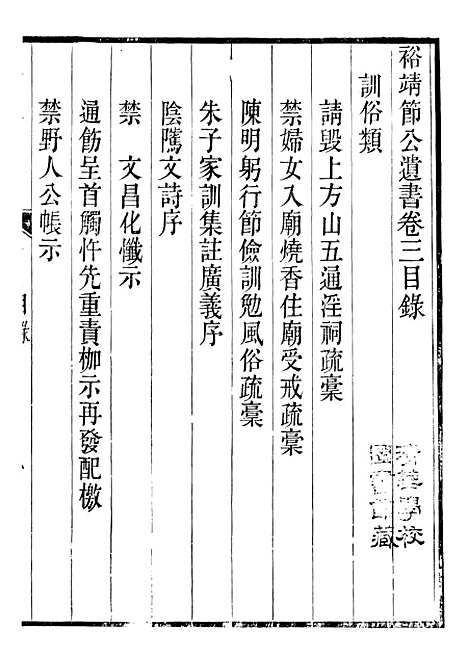 裕靖節公遺書卷三目錄
訓俗類
請毀上方山五通淫祠疏稾
禁婦女入廟燒香住廟受戒疏稾
陳明躬行節儉訓勉風俗疏稾
朱子家訓集註廣義序
陰隲文詩序
禁　文昌化懺示
通飭呈首觸忤先重責枷示再發配檄
禁野人公帳示
目錄